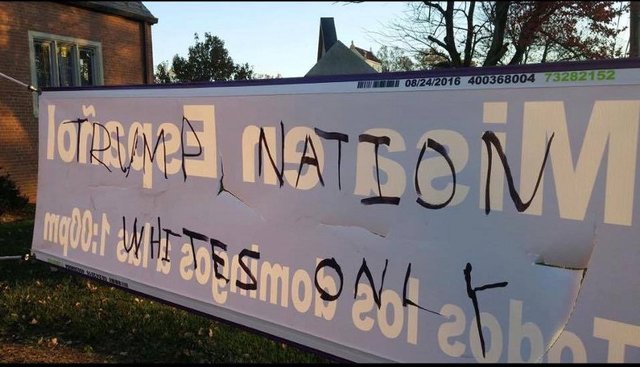 08/24/2016 400368004 73282152
Misa en Español
TRUMP NATION
Todos los domingos a las 1:00pm
WHITES ONLY